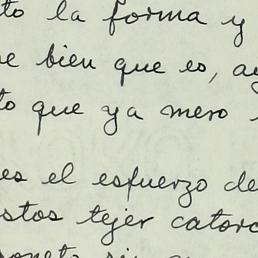 to la forma y
e bien que es, a
to que ya mero
es el esfuerzo de
stos tejer cator
soneto sin